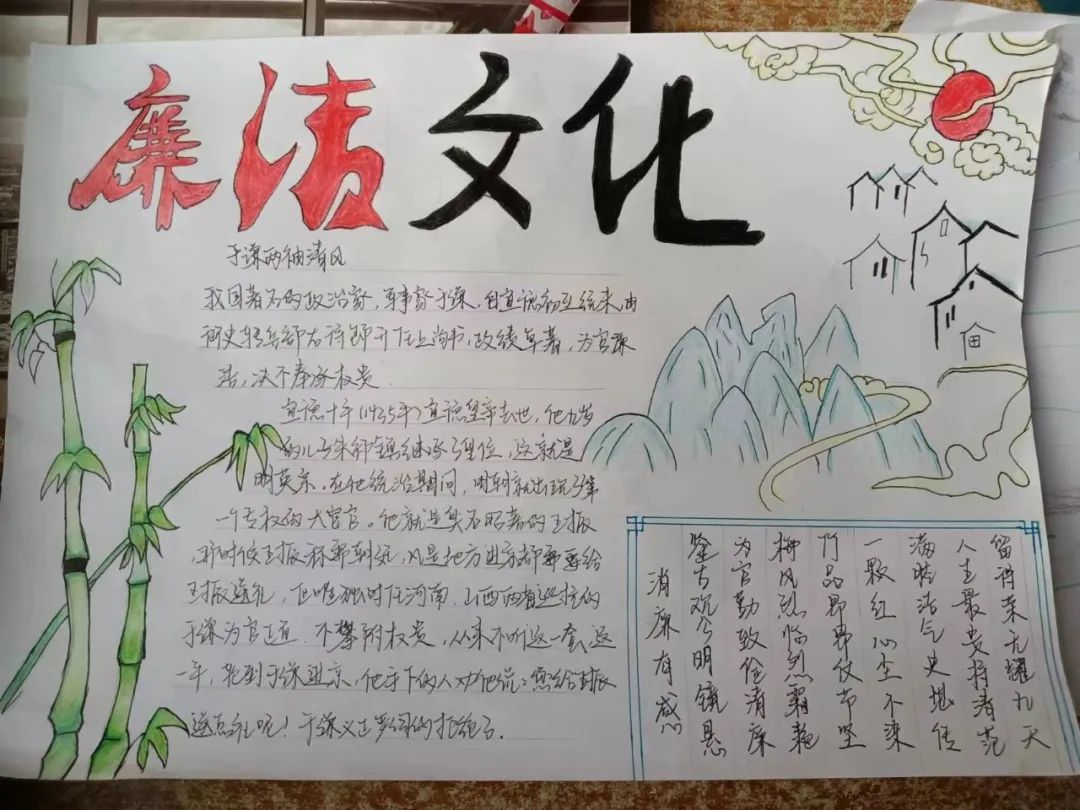 廉洁文化
于谦两袖清风
我国著名的政治家,军事家于谦,自宣德初至统末,由
御史转兵部右侍郎升任上尚书,政绩卓著,为官廉
洁,决不奉承权贵.
宣德十年(1435年)宣德皇帝去世,他九岁
的儿子朱祁镇继承了皇位,这就是
明英宗。在他统治期间,明朝就出现了第
一个专权的大宦官。他就是臭名昭著的王振
那时候王振 朝 ,凡是地方进京都需要给
王振送礼,但唯独时任河南、山西两省巡抚的
于谦为官正直、不攀附权贵,从来不听这一套、这
一年,轮到于谦进京、他手下的人劝他说:您给王振
送点礼呢!于谦义正 的拒绝了.
留得荣光耀九天
人生最贵持清范
满腔洁气史堪传
一颗红心尘不染
竹品昂昂仗节坚
柳风烈 烈霜
为官勤政俭清廉
鉴古观今明镜悬
消廉有感